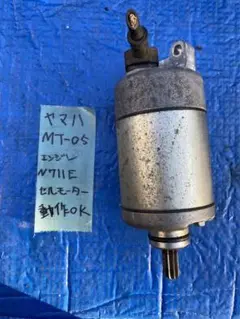 ヤマハ
MT-05
エンジン
N711E
セルモーター
動作OK